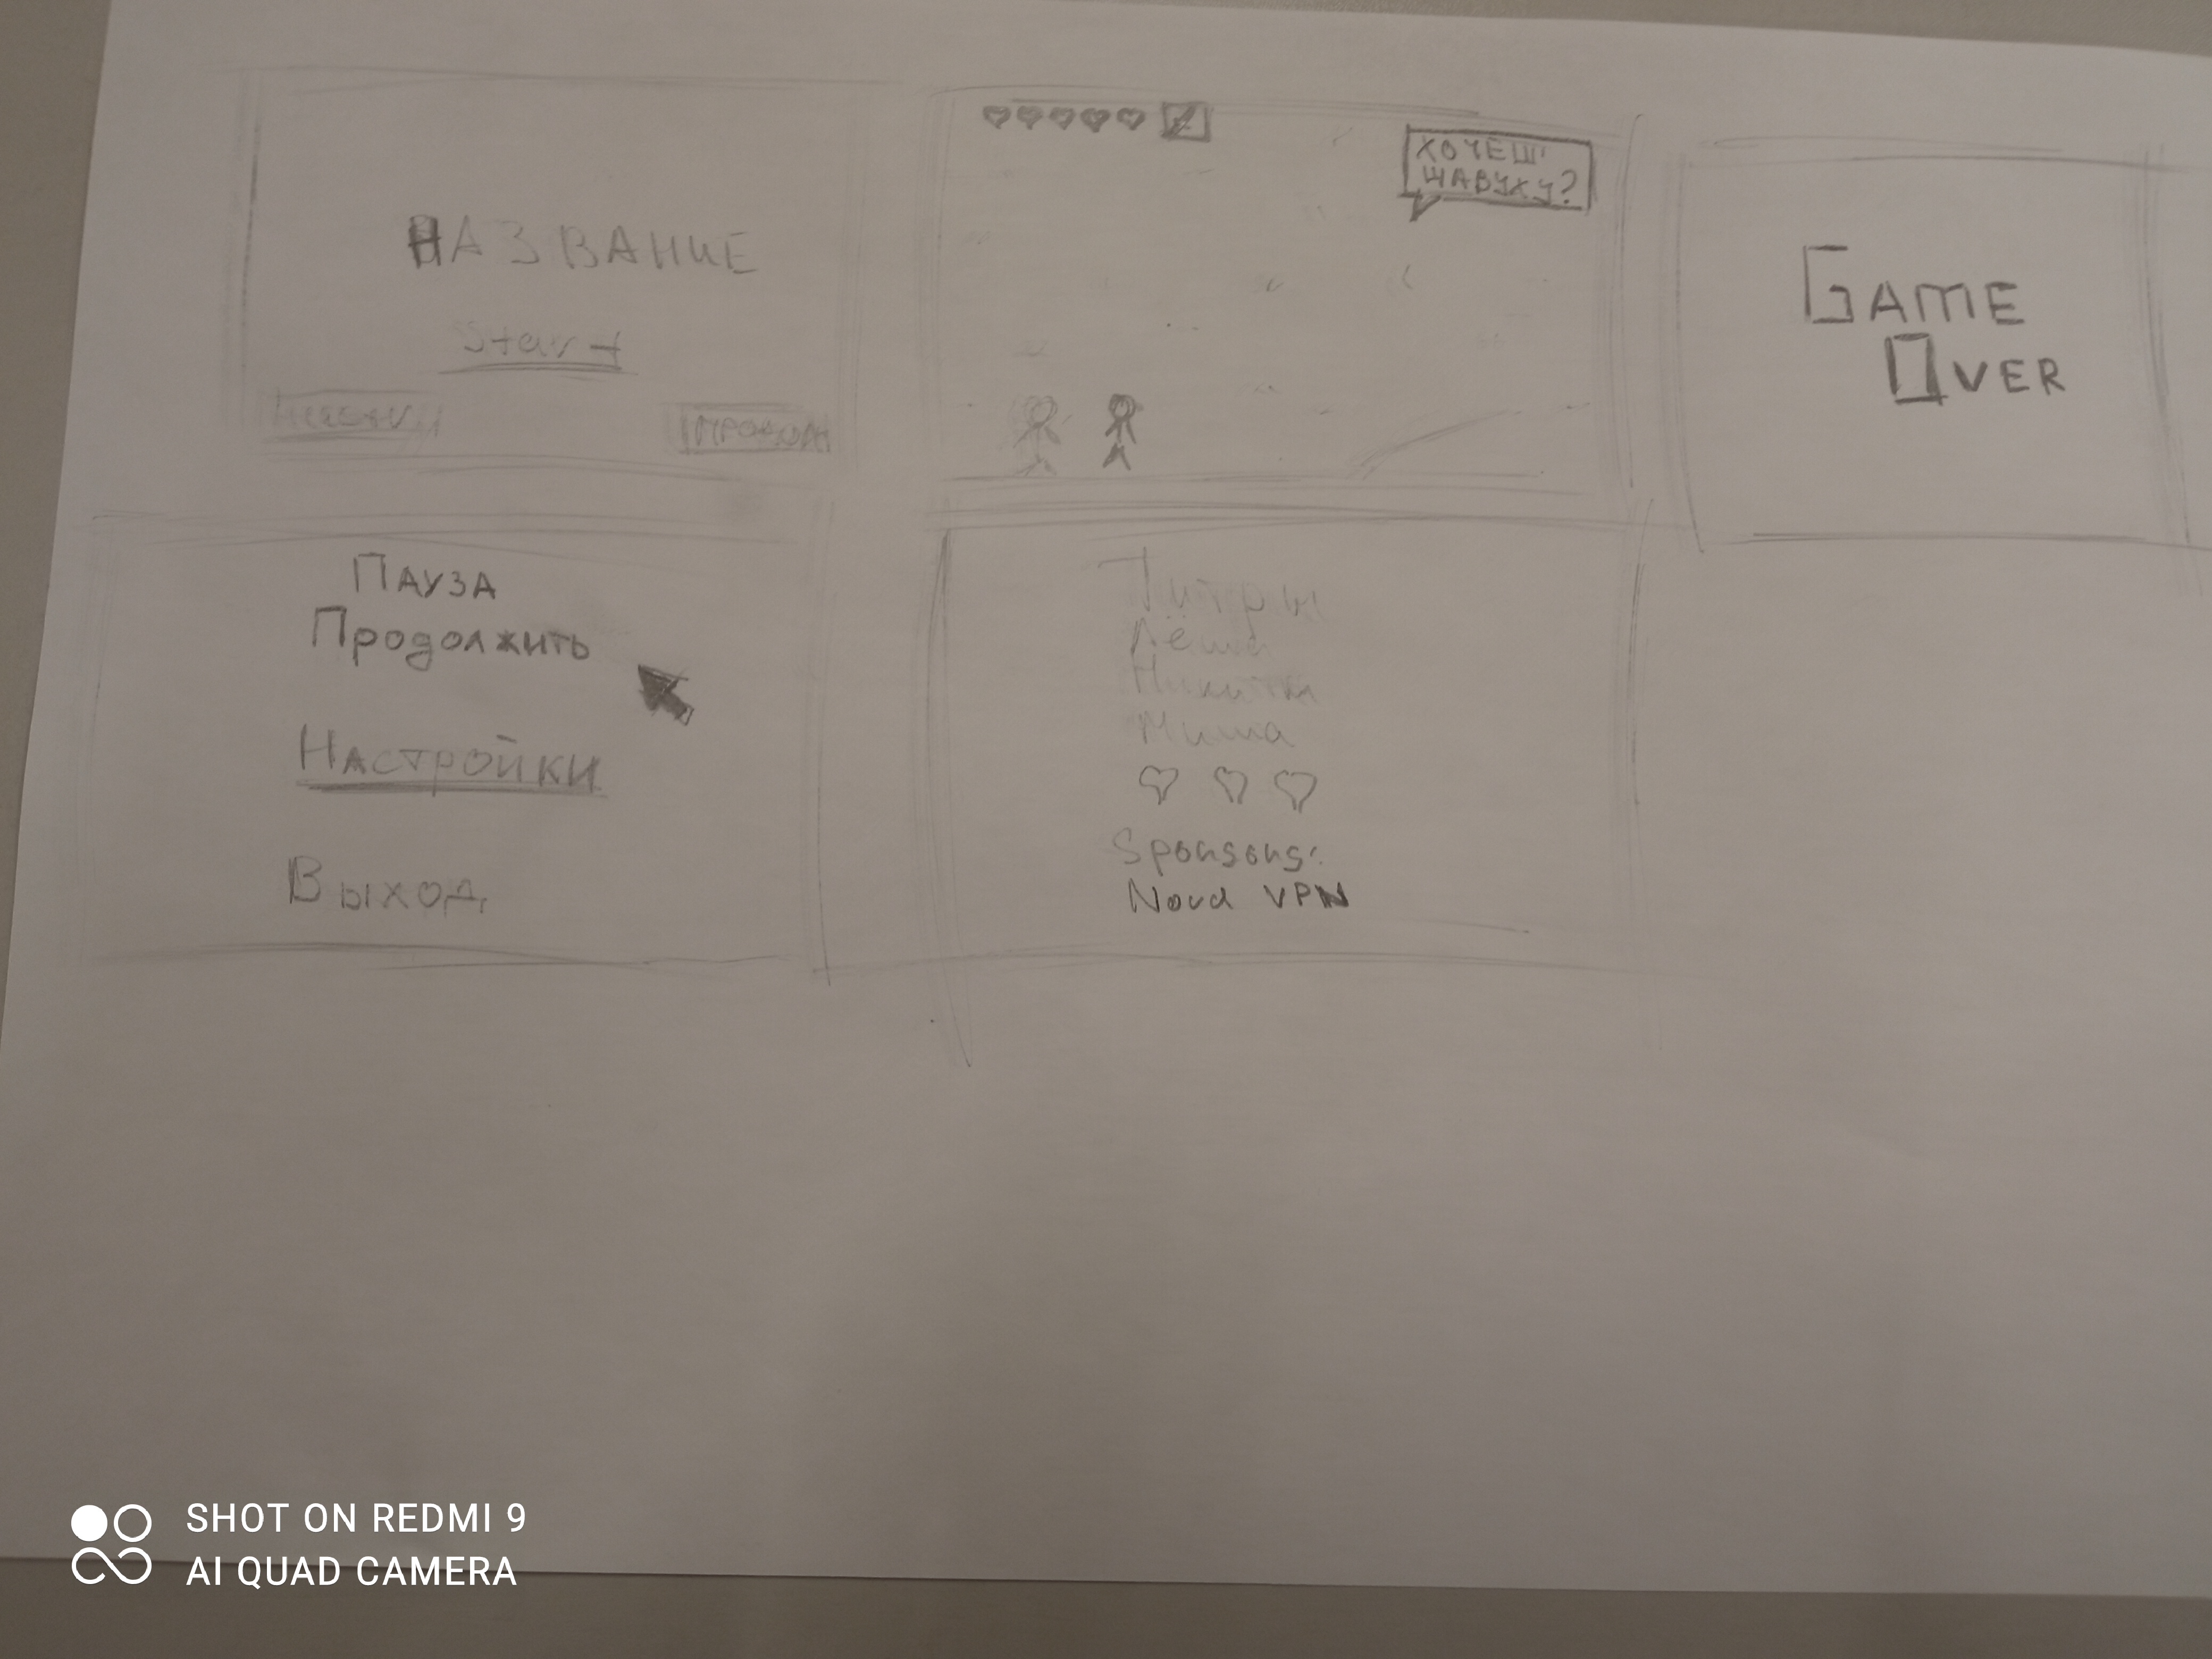 НАЗВАНИЕ
Start
ХОЧЕШ'
ШАВУХУ?
GAME
OVER
ПАУЗА
Продолжить
НАСТРОЙКИ
Выход
Титры
Лёша
Никита
Миша
Sponsons:
Nord VPN
SHOT ON REDMI 9
AI QUAD CAMERA